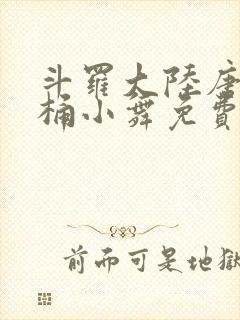 斗羅大陸唐
桶小舞免費
前而可是地獄